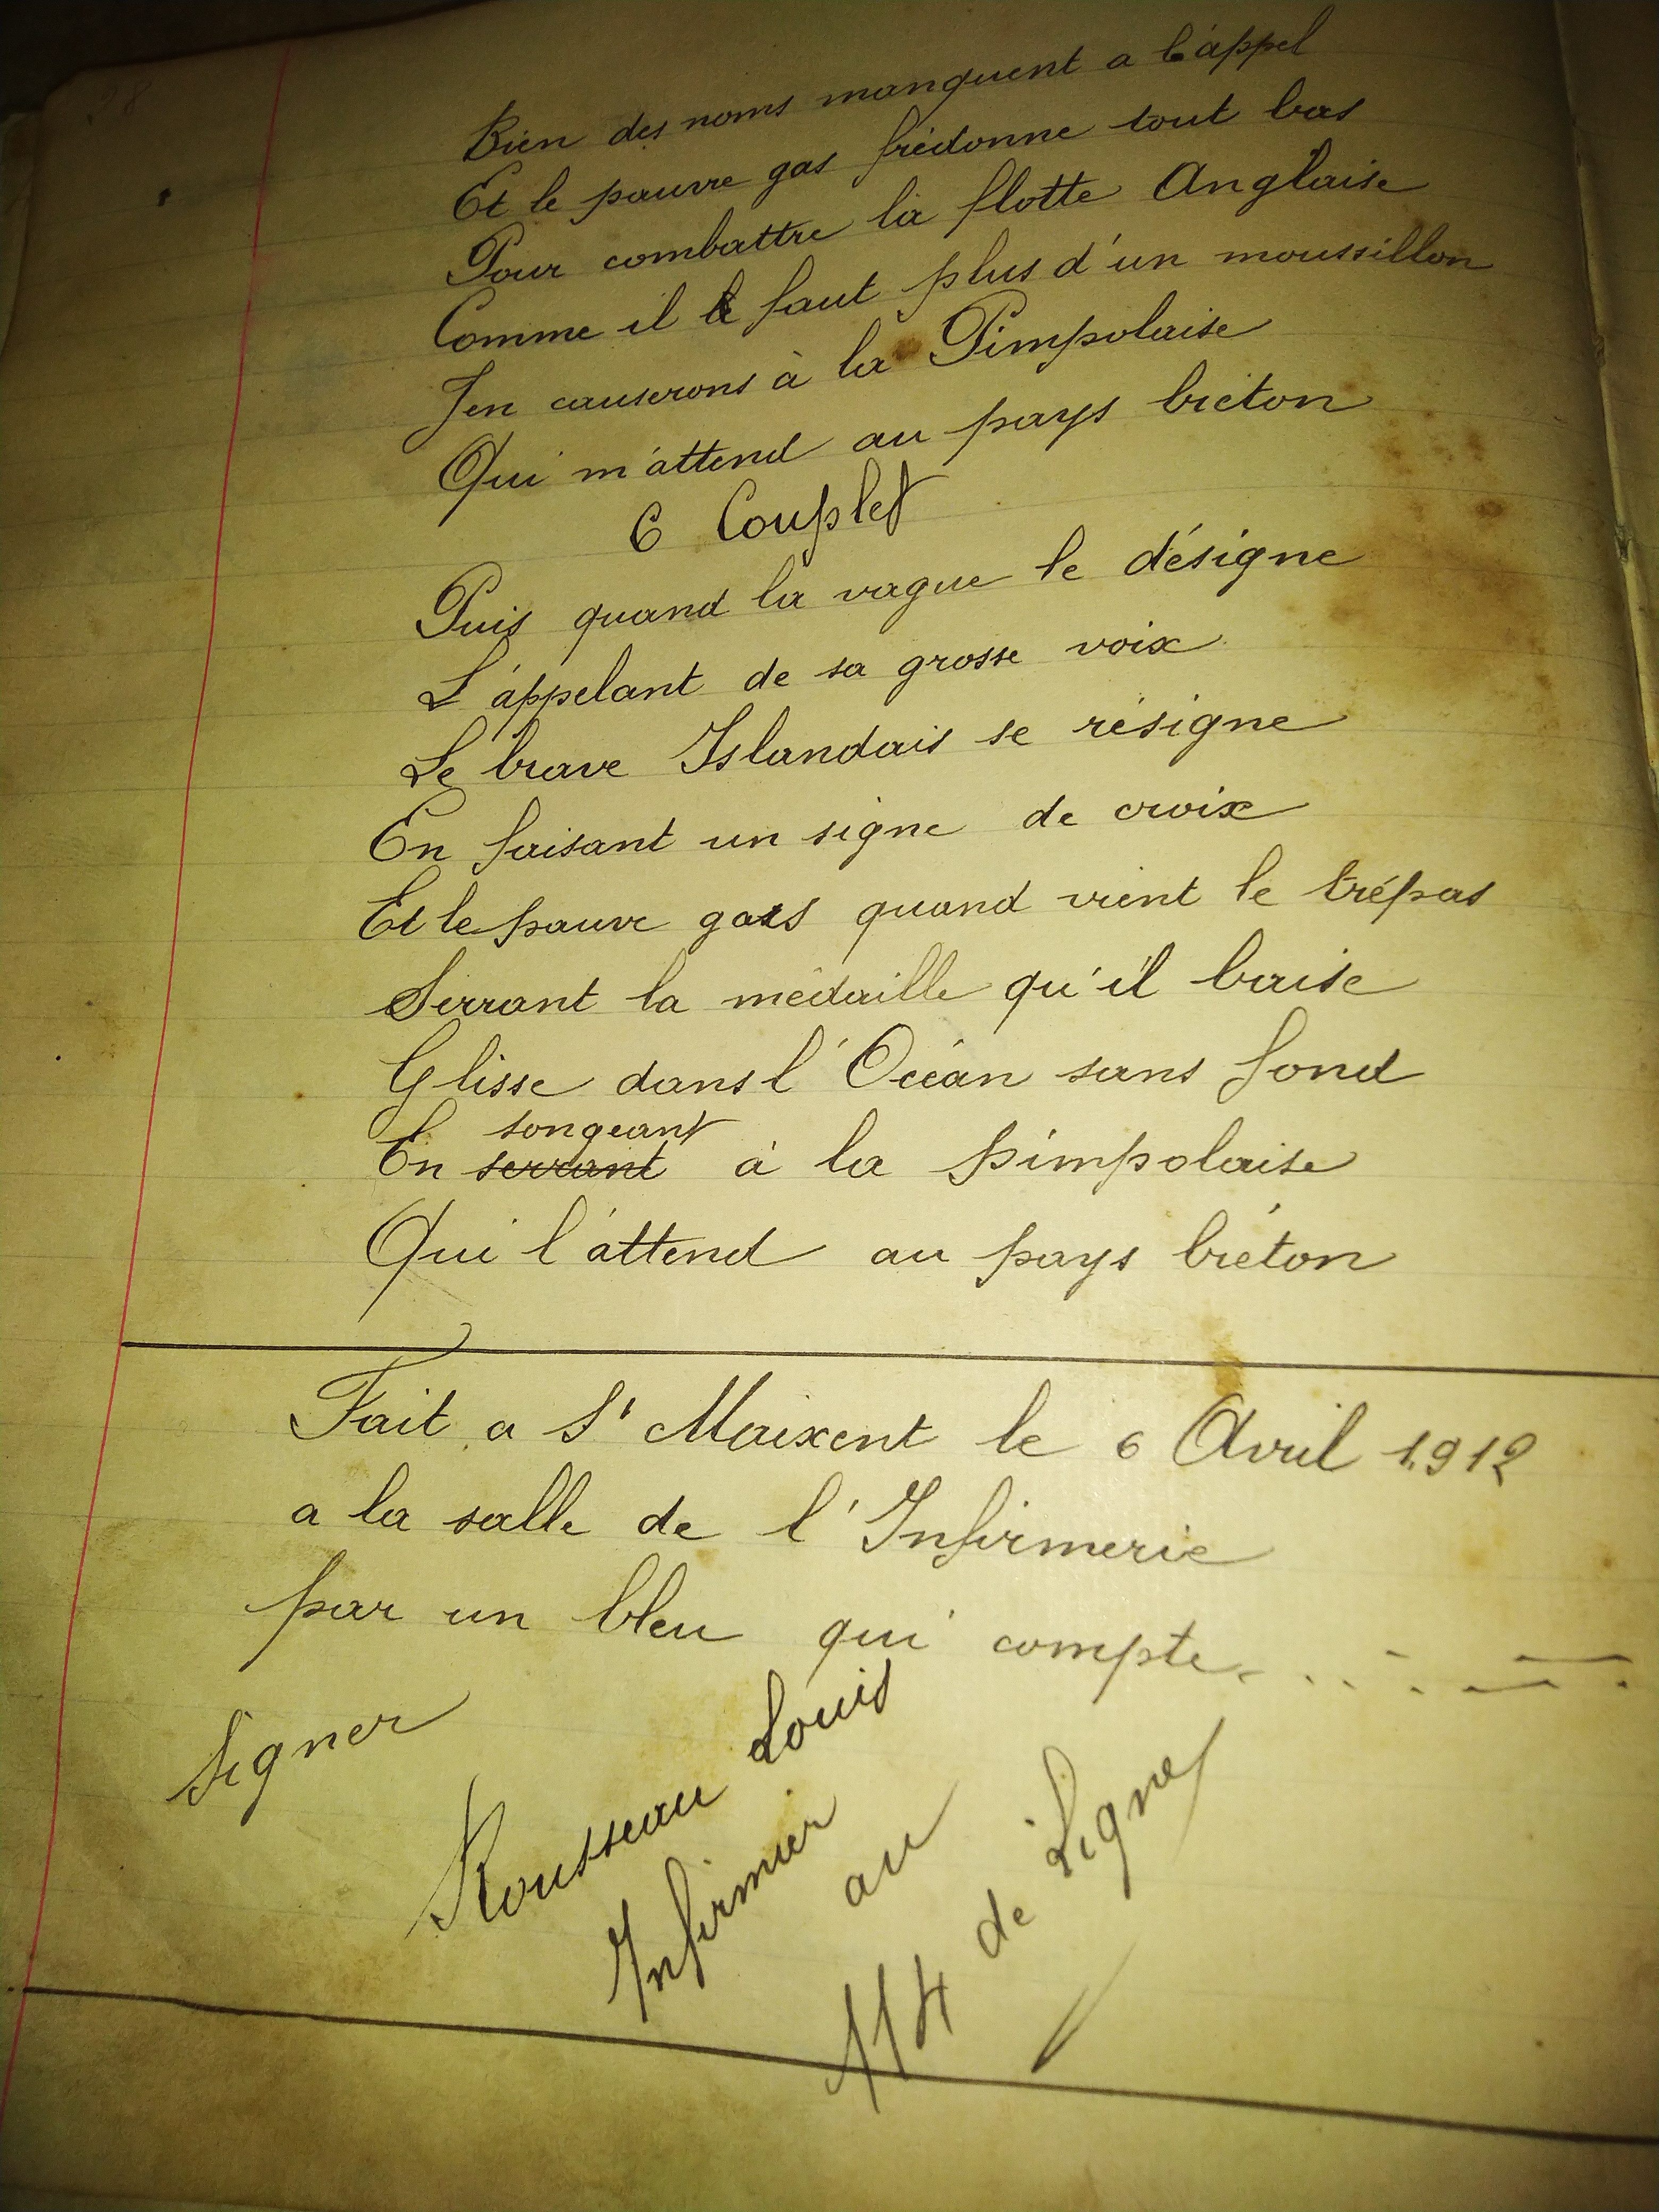 28
Bien des noms manquent a l'appel
Et le pauvre gas frédonne tout bas
Pour combattre la flotte Anglaise
Comme il le faut plus d'un moussillon
J'en causerons à la Pimpolaise
Qui m'attend au pays bréton
6 Couplet
Puis quand la vague le désigne
L'áppelant de sa grosse voix
Le brave Islandais se résigne
En faisant un signe de croix
Et le pauvre gars quand vient le trépas
Serrant la médaille qu'il baise
Glisse dans l'Océan sans fond
songeant
En serrant à la pimpolaise
Qui l'attend au pays bréton
Fait a St Maixent le 6 Avril 1.912
a la salle de l'Infirmerie
par un bleu qui compte......
Signer
Rousseau Louis
Infirmier
au
114 de Ligne